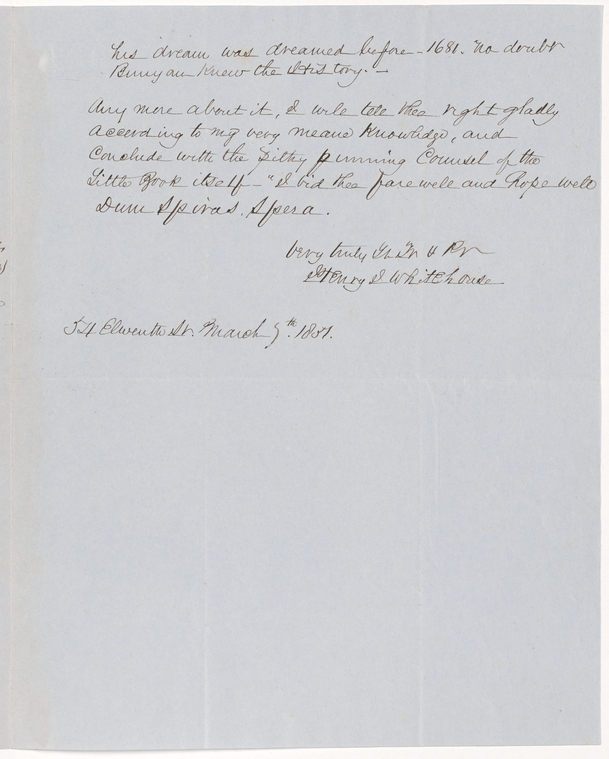 his dream was dreamed before - 1681. No doubt
Bunyan knew the History. -
Any more about it, I will tell thee right gladly
according to my very meane Knowledge, and
Conclude with the pithy punning Counsel of the
Little Book itself - "I bid thee farewell and hope well
Dum Spiras. Spera.
Very truly Yr Fr &
Henry J Whitehouse
54 Eleventh St. March 7th. 1851.